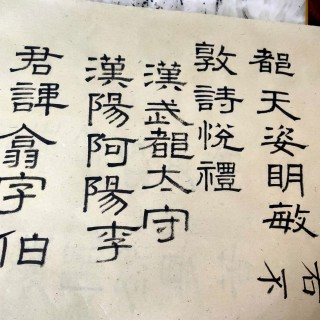 右不
都天姿眀敏
敦詩悅禮
漢武都太守
漢陽阿陽李
君諱翕字伯